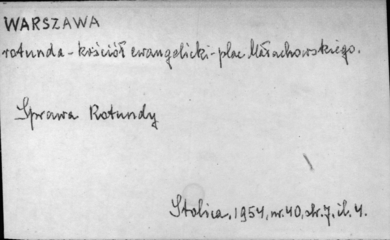 WARSZAWA
rotunda - kościół ewangelicki - plac Małachowskiego.
Sprawa Rotundy
Stolica, 1954, nr. 40, str. 7, il. 4.